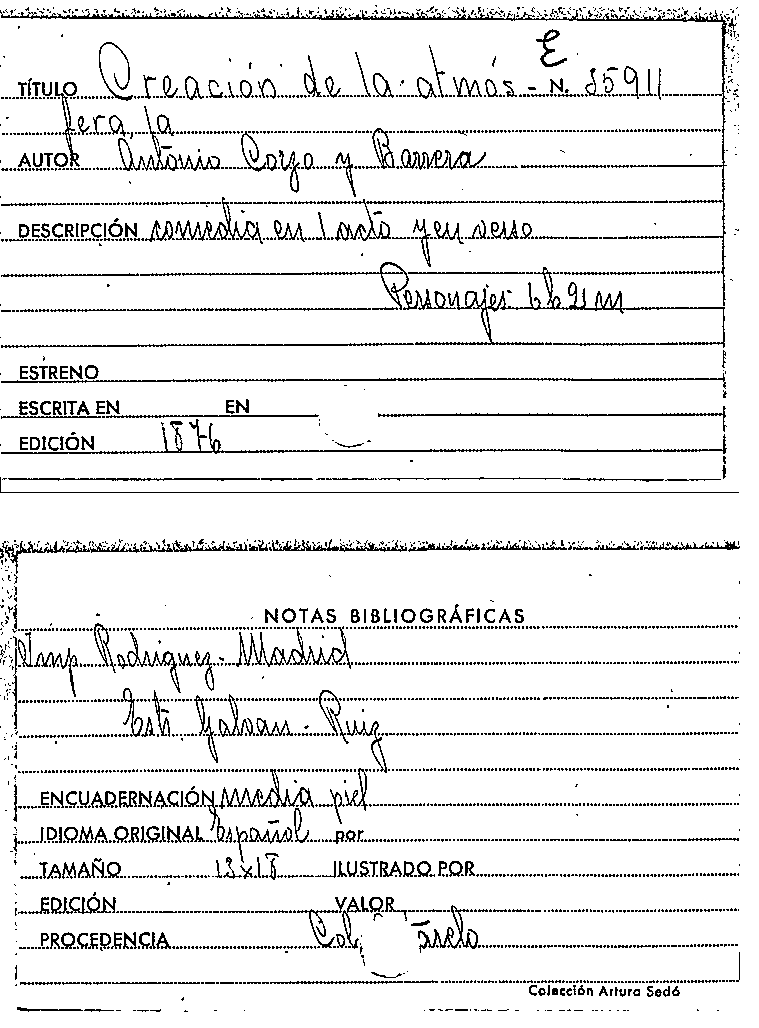 E
TÍTULO Creación de la atmós- N. 35911
fera, la
AUTOR Antonio Corzo y Barrera
DESCRIPCIÓN comedia en 1 acto y en verso
Personajes 6h 2m
ESTRENO
ESCRITA EN EN
EDICIÓN 1876
NOTAS BIBLIOGRÁFICAS
Imp. Rodriguez - Madrid
Est. Galvan - Ruiz
ENCUADERNACIÓN media piel
IDIOMA ORIGINAL Español por
TAMAÑO 13x18 ILUSTRADO POR
EDICIÓN VALOR
PROCEDENCIA Col.
Colección Arturo Sedó